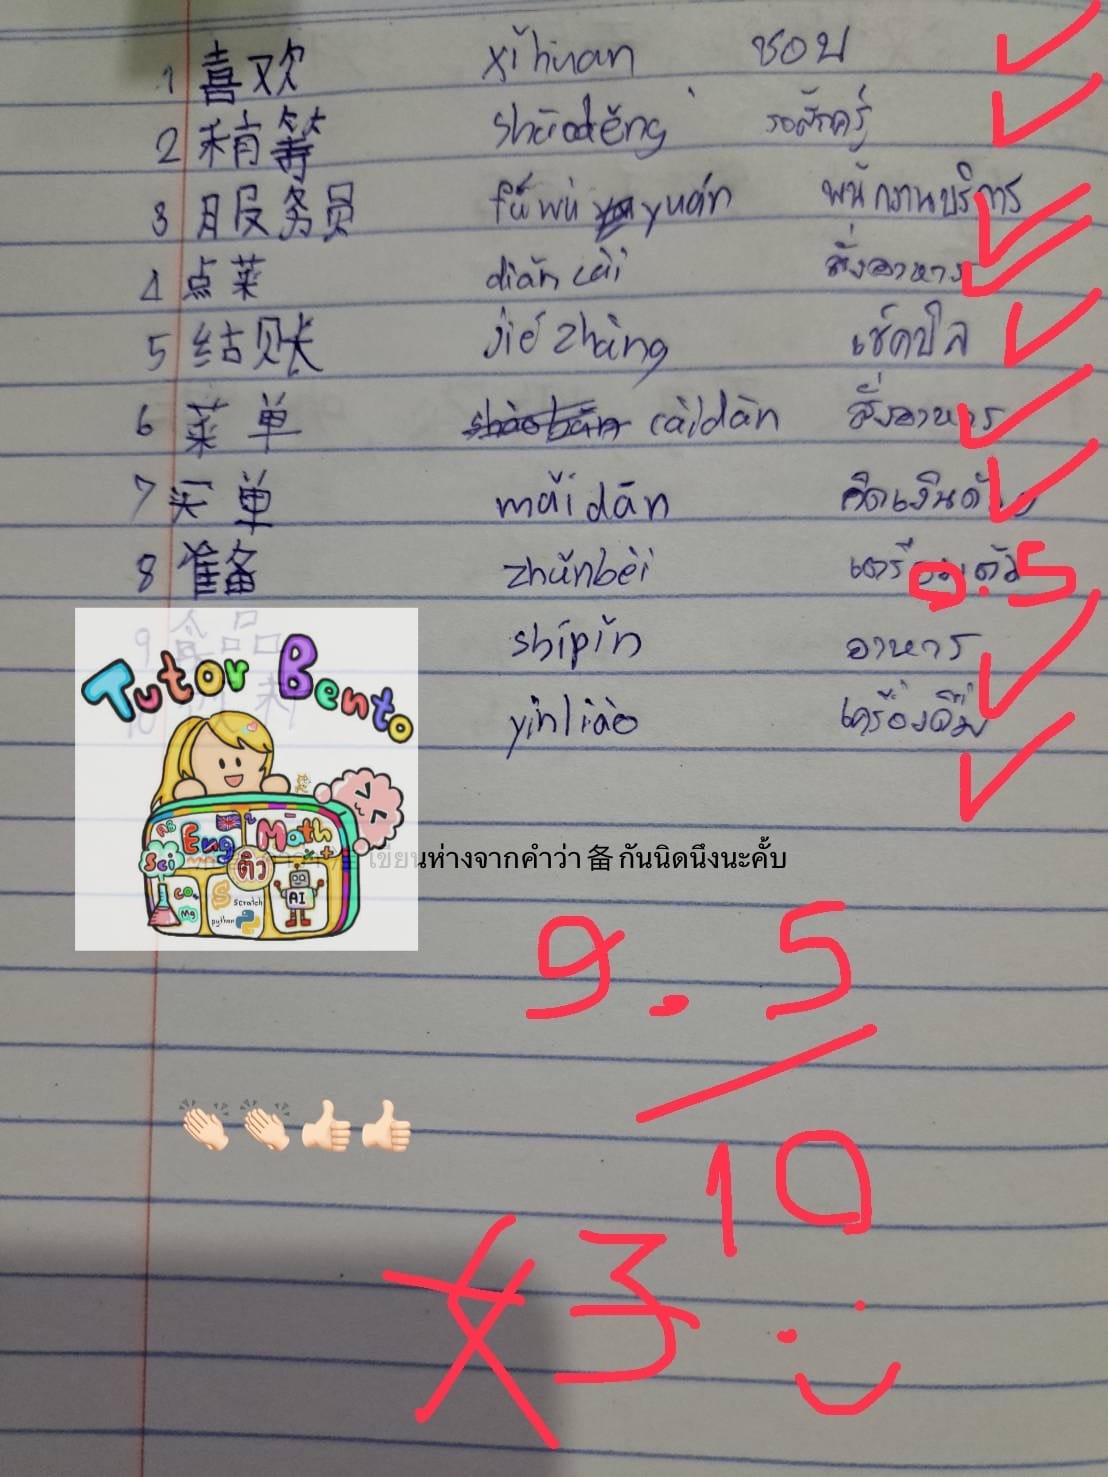 1 喜欢 xǐhuan ชอบ
2 稍等 shāoděng รอสักครู่
3 服务员 fúwù yuán พนักงานบริการ
4 点菜 diǎn cài สั่งอาหาร
5 结账 jié zhàng เช็คบิล
6 菜单 càidān สั่งอาหาร
7 买单 mǎi dān คิดเงินด้วย
8 准备 zhǔnbèi 0.5
9 食品 shípǐn อาหาร
10 yǐnliào เครื่องดื่ม
Tutor Bento
Eng Math
Sci ติว AI
Scratch
python
เขียนห่างจากคำว่า 备 กันนิดนึงนะคั้บ
9.5
10
好